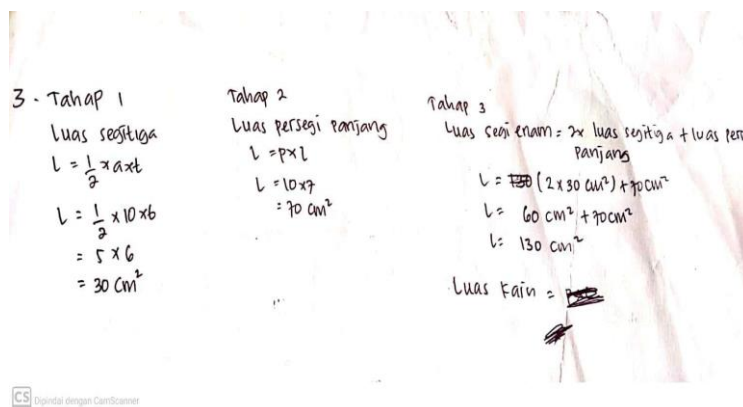 3. Tahap 1
Luas segitiga
L = 1/2 x a x t
L = 1/2 x 10 x 6
= 5 x 6
= 30 cm²
Tahap 2
Luas persegi panjang
L = p x l
L = 10 x 7
= 70 cm²
Tahap 3
Luas segi enam = 2x luas segitiga + luas per
panjang
L = (2 x 30 cm²) + 70 cm²
L = 60 cm² + 70 cm²
L = 130 cm²
Luas kain =
CS Dipindai dengan CamScanner